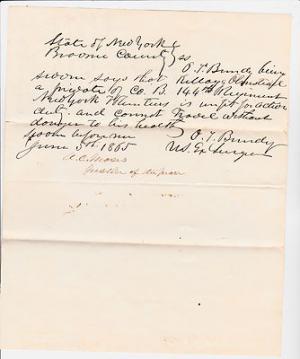 State of New York
Broome County ss
O. T. Bundy being
sworn says that Kellogg
a private of Co. B. 144th Regiment
New York Vlunties is unfit for active
duty and cannot travel without
danger to his health
Sworn before me O. T. Bundy
June 3rd 1865 U.S. Ex Surgeon